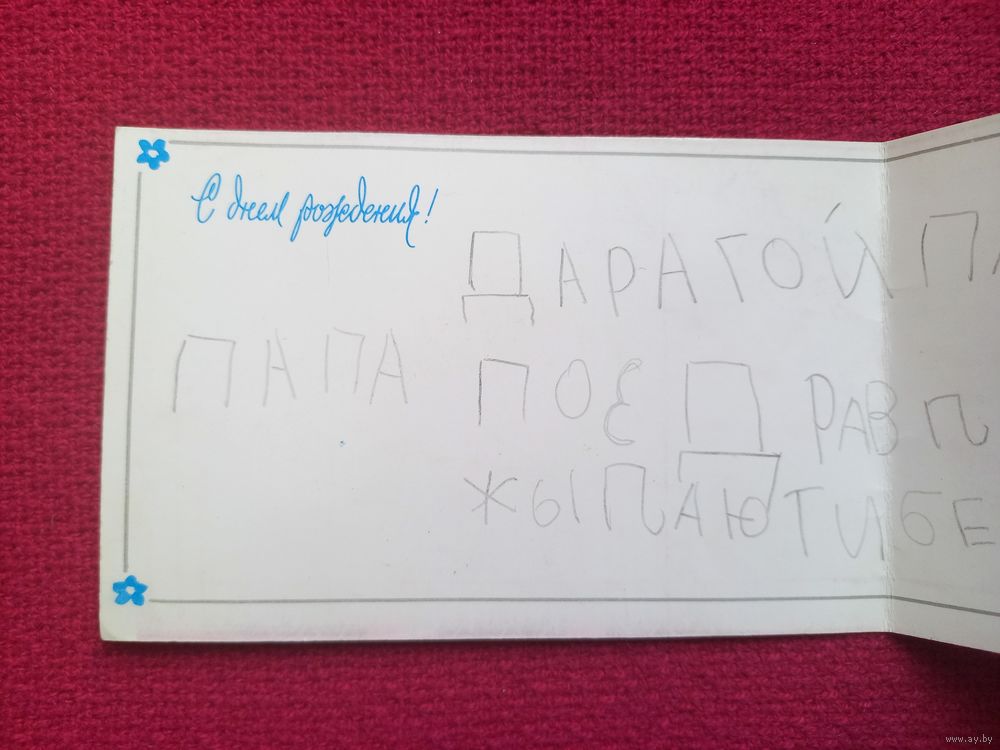 С днем рождения!
ДАРАГОЙ ПА
ПАПА
ПОЕД РАВ П
ЖЫПАЮ ТИБЕ
www.ay.by